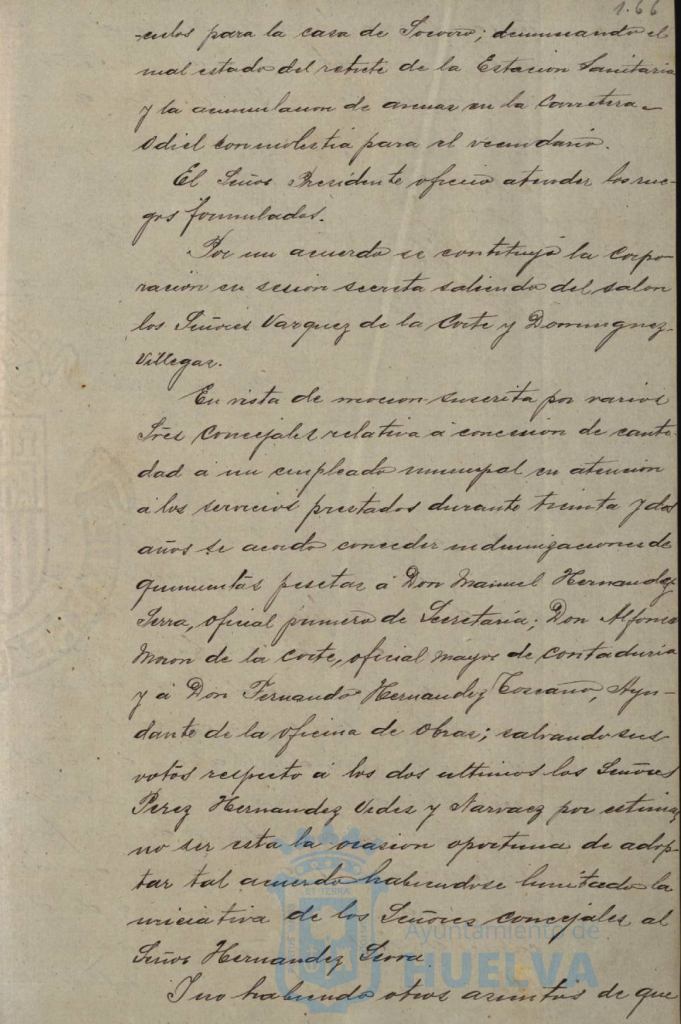 166
-culos para la casa de Socorro; denunciando el
mal estado del retrete de la Estacion Sanitaria
y la acumulacion de arenas en la Carretera
Odiel con molestia para el vecindario.
El Señor Presidente ofrecio atender los rue-
gos formulados.
Por un acuerdo se constituyó la Corpo-
ración en sesion secreta saliendo del salon
los Señores Vazquez de la Corte y Dominguez
Villegas.
En vista de mocion suscrita por varios
Sres Concejales relativa á concesion de canti-
dad á un empleado municipal en atencion
á los servicios prestados durante treinta y dos
años se acordo conceder indemnizaciones de
quinientas pesetas á Don Manuel Hernandez
Serra, oficial primero de Secretaria; Don Alfonso
Moron de la Corte, oficial mayor de Contaduria
y á Don Fernando Hernandez Toscano, Ayu-
dante de la oficina de Obras; salvando sus
votos respecto á los dos ultimos los Señores
Perez Hernandez Vides y Narvaez por estimar
no ser esta la ocasion oportuna de adop-
tar tal acuerdo habiendose limitado la
iniciativa de los Señores Concejales al
Señor Hernandez Serra.
I no habiendo otros asuntos de que
Ayuntamiento de
HUELVA